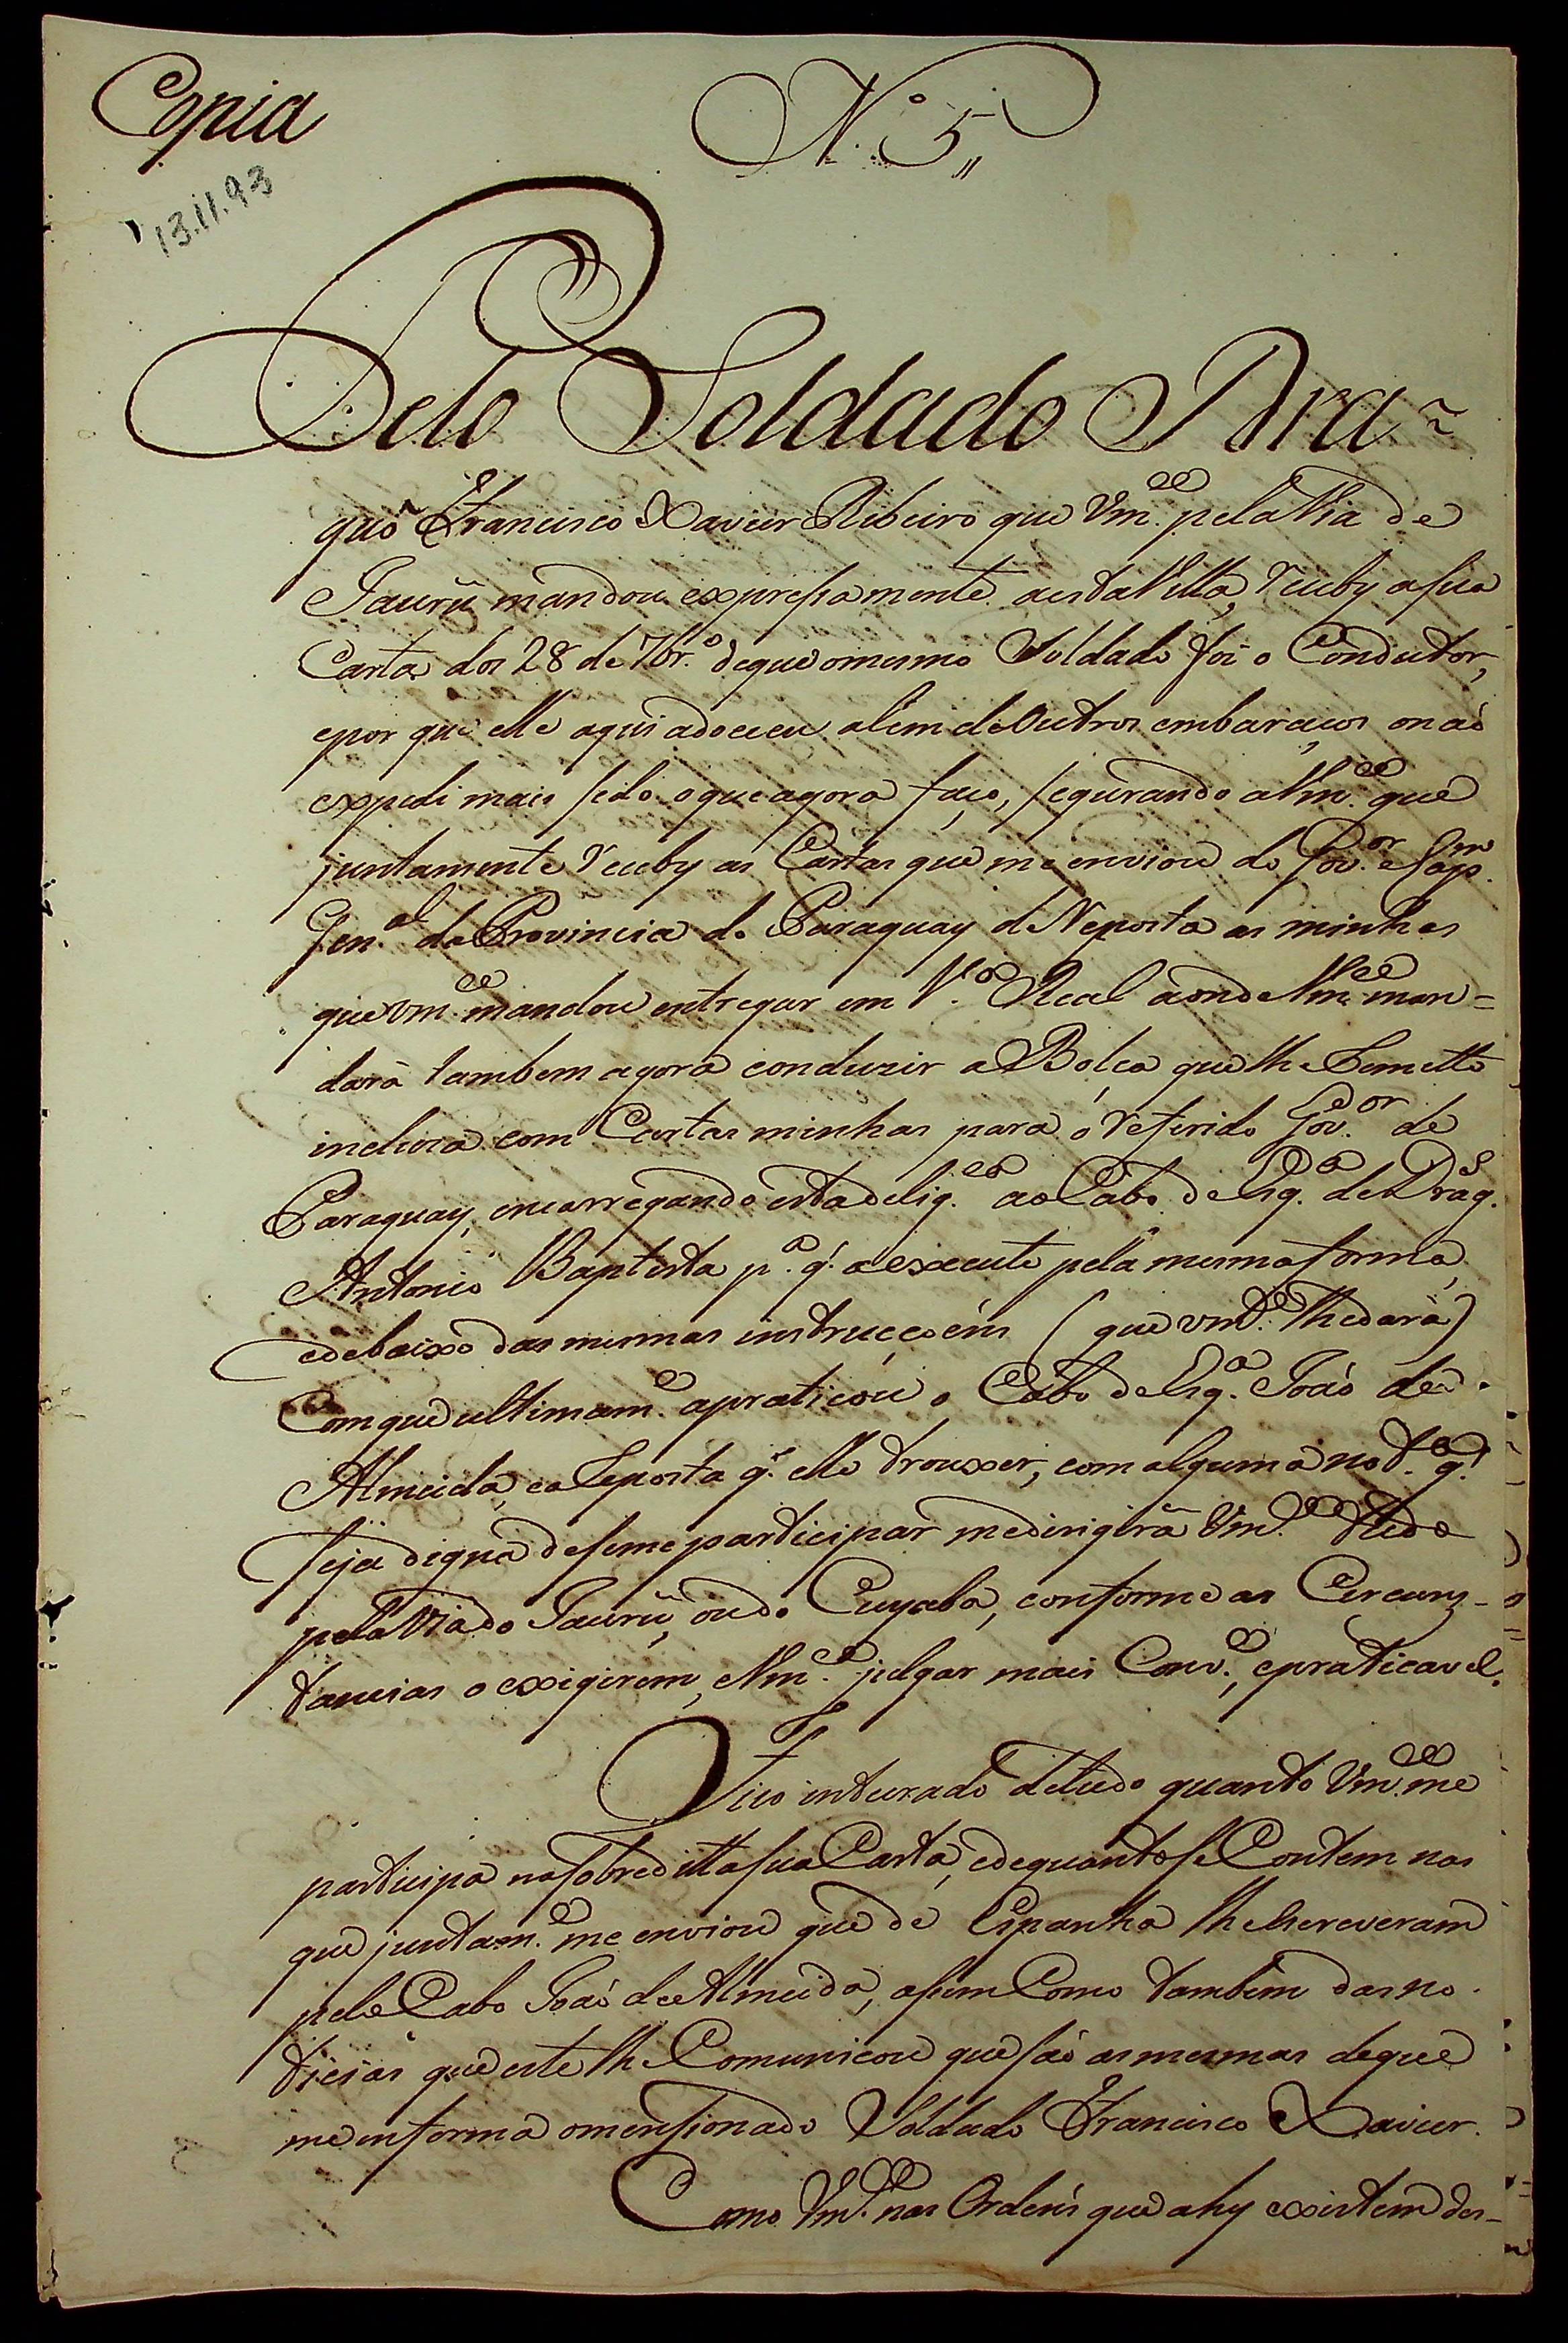 Copia
N.º 5,,
13.11.93
Pelo Soldado Dra~
guõ Francisco Xavier Ribeiro que Vm.ce pela Via de
Jaurú mandou expresamente a esta Villa, recebý a sua
Carta dos 28 de 7br.º de que o mesmo Soldado foi o Condutor,
e por que elle aqui adoeceu alem de outros embaraços o naõ
expedi mais sedo o que agora faço, segurando a Vm.ce que
juntamente recebý as Cartas que me enviou do Gov.or e Cap.m
Gen.al da Provincia do Paraguay de Reposta as minhas
que vm.ce mandou entregar em V.a Real aonde Vm.ce man=
dará tambem agora conduzir a Bolça que lhe Remetto
incluza com Cartas minhas para o referido Gov.dor de
Paraguay, encarregando esta delig.ca ao Cabo de Esq.a de Drag.s
Antonio Baptista p.a q' a execute pela mesma forma,
e debaixo das mesmas instrucçoéns (que vm.ce lhe dará)
Com que ultimam.e a praticou o Cabo de Esq.a Joaõ de
Almeida, e a Reposta q' elle trouxer, com alguma not.a q'
seja digna de se me participar me dirigirá Vm.ce tudo
pela Via do Jaurú, ou do Cuyabá, conforme as Circuns-
tancias o exigirem, e Vm.ce julgar mais Conv.e, e praticavel.
Fico inteirado de tudo quanto Vm.ce me
participa na sobreditta sua Carta, e de quanto se Contem nas
que juntam.e me enviou que de Espanha lhe escreveram
pelo Cabo Joaõ de Almeida, asim Como tambem das no-
ticias que este lhe Comunicou que saõ as mesmas de que
me informa o mensionado Soldado Francisco Xavier.
Como Vm.ce nas Ordens que ahy existem des-